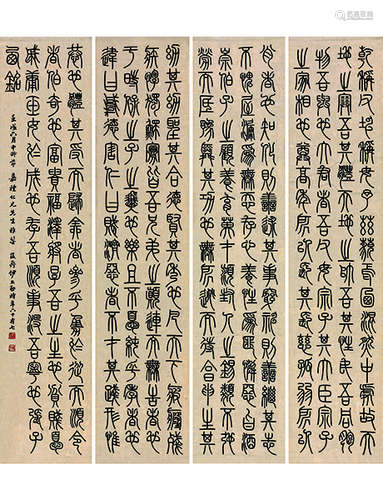 乾稱父坤稱母予茲藐焉乃混然中處故天
地之塞吾其體天地之帥吾其性民吾同胞
物吾與也大君者吾父母宗子其大臣宗子
之家相也尊高年所以長其長慈孤弱所以
肖者也知化則善述其事窮神則善繼其志
不愧屋漏為無忝存心養性為匪懈惡旨酒
崇伯子之顧養育英才穎封人之錫類不弛
勞而底豫舜其功也無所逃而待烹申生其
幼其幼聖其合德賢其秀也凡天下疲癃殘
疾惸獨鰥寡皆吾兄弟之顛連而無告者也
于時保之子之翼也樂且不憂純乎孝者也
違曰悖德害仁曰賊濟惡者不才其踐形惟
恭也體其受而歸全者參乎勇於從而順令
者伯奇也富貴福澤將厚吾之生也貧賤憂
戚庸玉女於成也存吾順事沒吾寧也張子
西銘
壬戌八月中浣書 仁兄先生雅屬 伊立勳時年六十有七